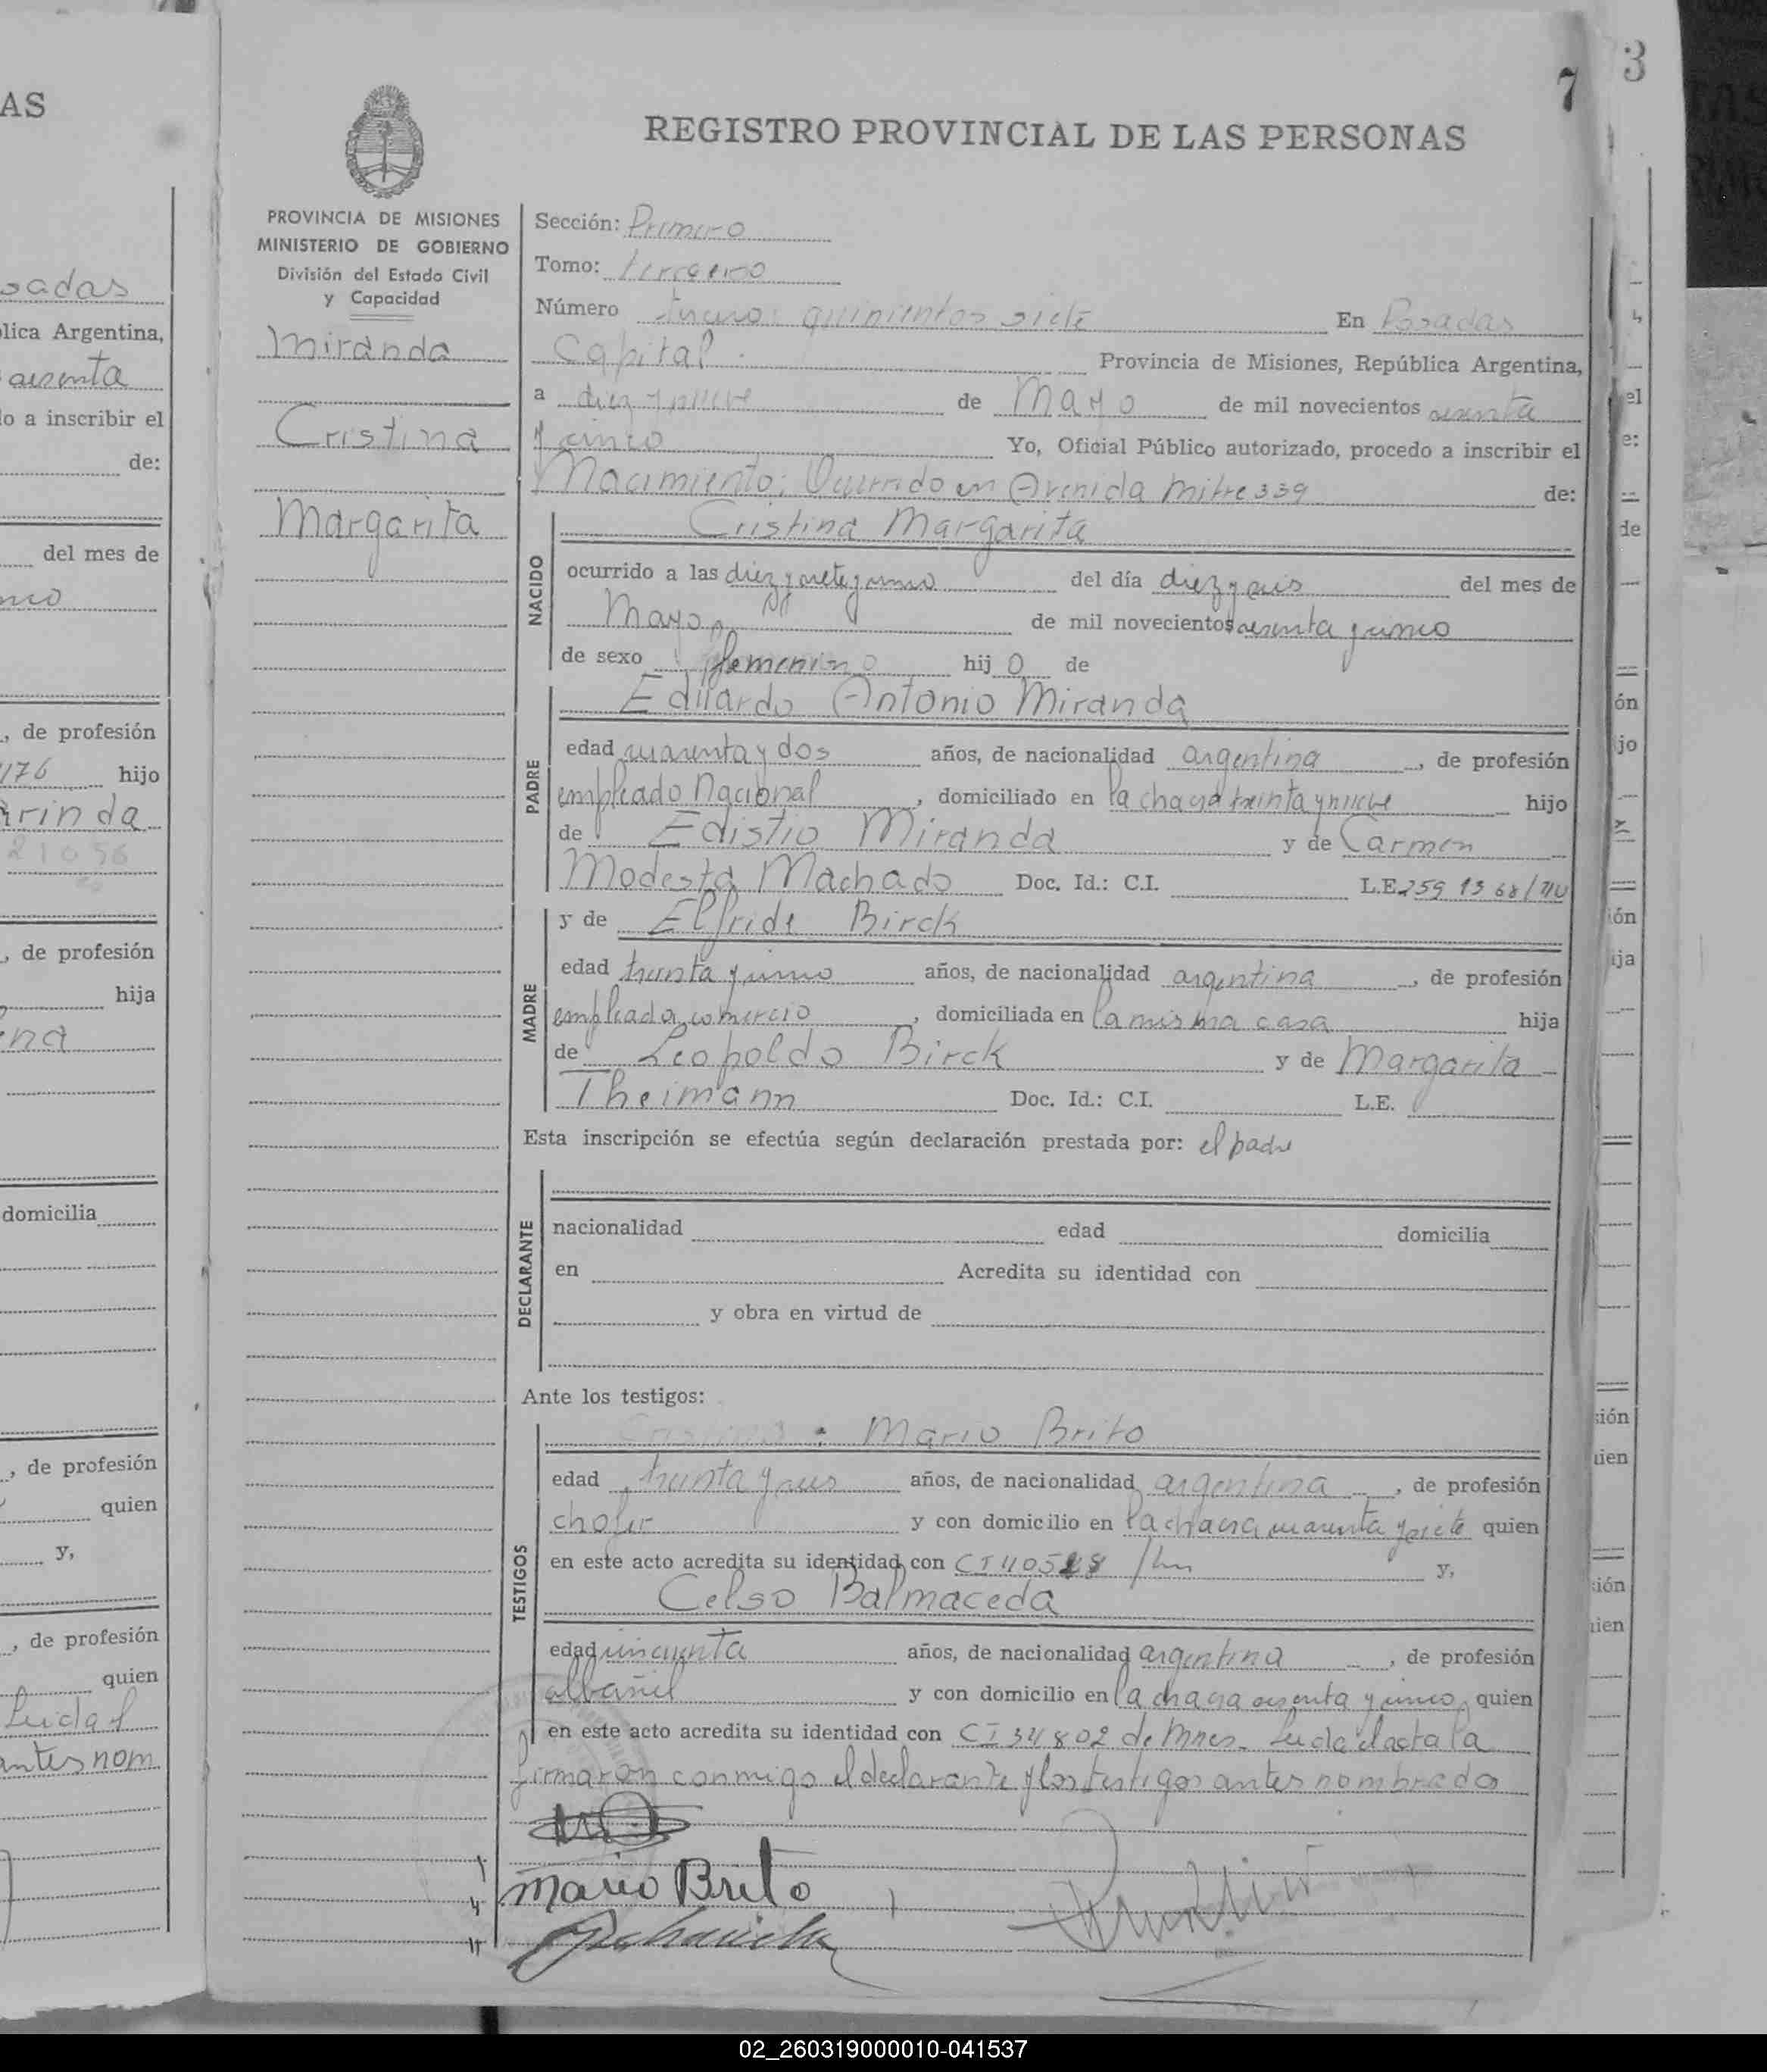 AS
sadas
lica Argentina,
o a inscribir el
de:
del mes de
, de profesión
176 hijo
rinda
21056
, de profesión
hija
na
domicilia
, de profesión
quien
y,
, de profesión
quien
antes nom
7
3
REGISTRO PROVINCIAL DE LAS PERSONAS
PROVINCIA DE MISIONES
MINISTERIO DE GOBIERNO
División del Estado Civil
y Capacidad
Miranda
Cristina
Margarita
Sección: Primero
Tomo: tercero
Número quinientos siete En Posadas
Capital. Provincia de Misiones, República Argentina,
a diez y nueve de Mayo de mil novecientos sesenta
y cinco Yo, Oficial Público autorizado, procedo a inscribir el
Nacimiento; Ocurrido en Avenida Mitre 339 de:
NACIDO
Cristina Margarita
ocurrido a las diez y siete y cinco del día diez y seis del mes de
Mayo de mil novecientos sesenta y cinco
de sexo femenino hij o de
PADRE
Eduardo Antonio Miranda
edad cuarenta y dos años, de nacionalidad argentina, de profesión
empleado Nacional, domiciliado en la chacra treinta y nueve hijo
de Edistio Miranda y de Carmen
Modesta Machado Doc. Id.: C.I. L.E.
MADRE
y de Elfride Birck
edad treinta y cinco años, de nacionalidad argentina, de profesión
empleada comercio, domiciliada en la misma casa hija
de Leopoldo Birck y de Margarita
Theimann Doc. Id.: C.I. L.E.
Esta inscripción se efectúa según declaración prestada por: el padre
DECLARANTE
nacionalidad edad domicilia
en Acredita su identidad con
y obra en virtud de
Ante los testigos:
TESTIGOS
Mario Brito
edad treinta y seis años, de nacionalidad argentina, de profesión
chofer y con domicilio en la chacra cuarenta y siete quien
en este acto acredita su identidad con CI y,
Celso Balmaceda
edad cincuenta años, de nacionalidad argentina, de profesión
albañil y con domicilio en la chacra sesenta y cinco, quien
en este acto acredita su identidad con CI 34802 de Mnes. Leida el acta la
firmaron conmigo el declarante y los testigos antes nombrados
Mario Brito
02_260319000010-041537